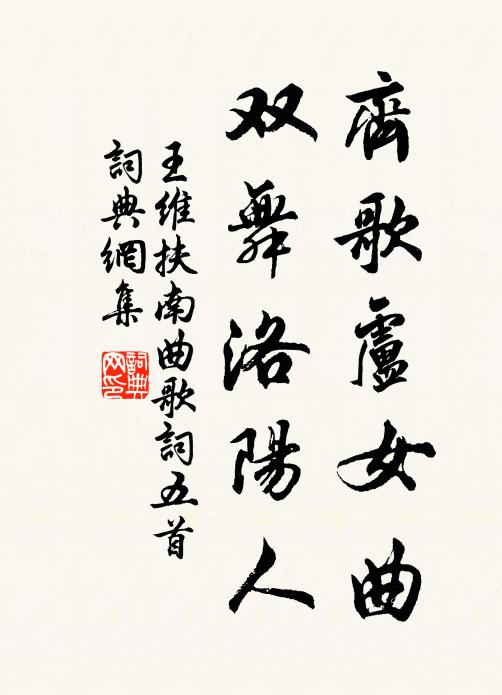 齊歌盧女曲
双舞洛陽人
王維扶南曲歌詞五首
詞典網集
詞典
网印